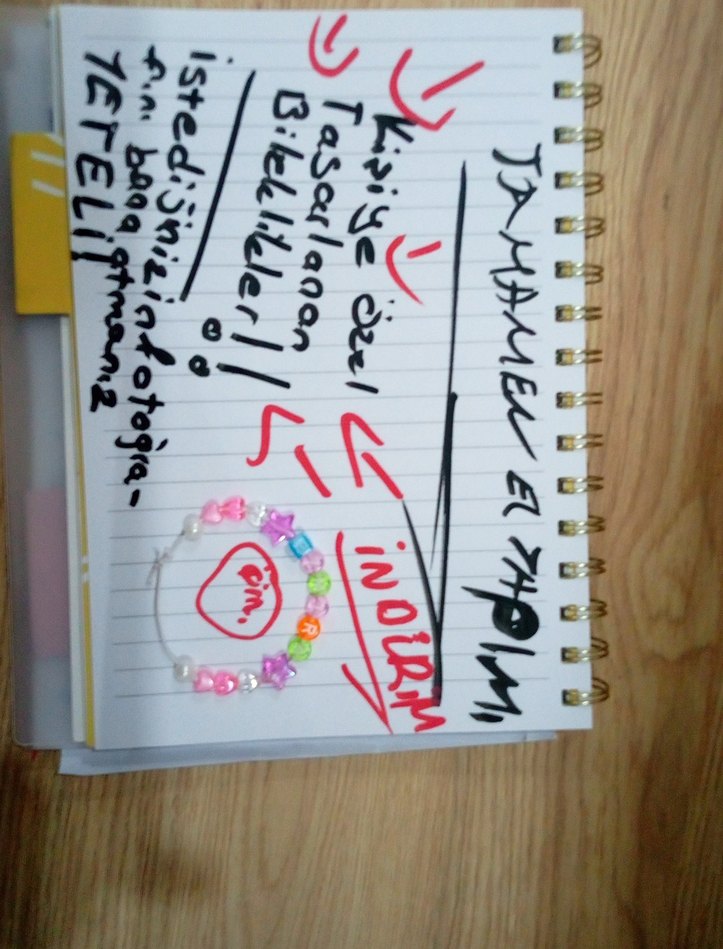 TAMAMEN EL YAPIMI,
Kişiye özel
Tasarlanan
Bileklikler!!
İNDİRİM
istediğinizin fotoğra-
fını bana atmanız
YETERLİ!